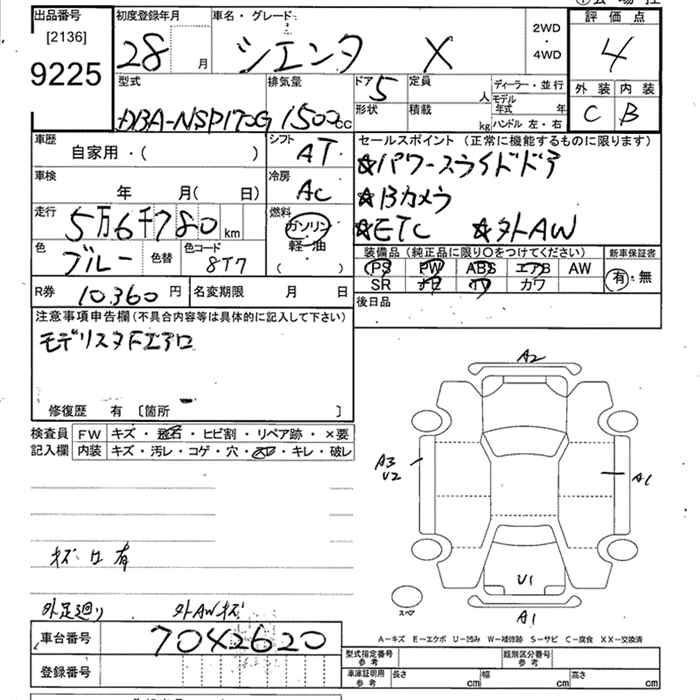 出品番号
[2136]
9225
初度登録年月
28 月
車名・グレード
シエンタ X
2WD
・
4WD
評価点
4
外装 内装
C B
型式
DBA-NSP170G
排気量
1500cc
ドア
5
定員
人
形状
積載
kg
ディーラー・並行
モデル年式 年
ハンドル 左・右
車歴
自家用・( )
シフト
AT
車検
年 月( 日)
冷房
AC
走行
5万6千780km
燃料
ガソリン
軽油
( )
色
ブルー
色替
色コード
8T7
セールスポイント (正常に機能するものに限ります)
☆パワースライドドア
☆Bカメラ
☆ETC ☆外AW
装備品 (純正品に限り○をつけてください)
PS PW ABS エアB AW
SR ナビ TV カワ
新車保証書
有・無
R券
10,360円
名変期限 月 日
後日品
注意事項申告欄(不具合内容等は具体的に記入して下さい)
モデリスタFエアロ
修復歴 有 〔箇所 〕
検査員記入欄
FW キズ・飛石・ヒビ割・リペア跡・×要
内装 キズ・汚レ・コゲ・穴・・キレ・破レ
キズ 有
外足廻り 外AWキズ
A2
A3
U2
A1
U1
A1
スペア
A-キズ E-エクボ U-凹み W-補修跡 S-サビ C-腐食 XX-交換済
車台番号
7042620
登録番号
型式指定番号
参考
類別区分番号
参考
車庫証明用
参考
長さ cm
幅 cm
高さ cm